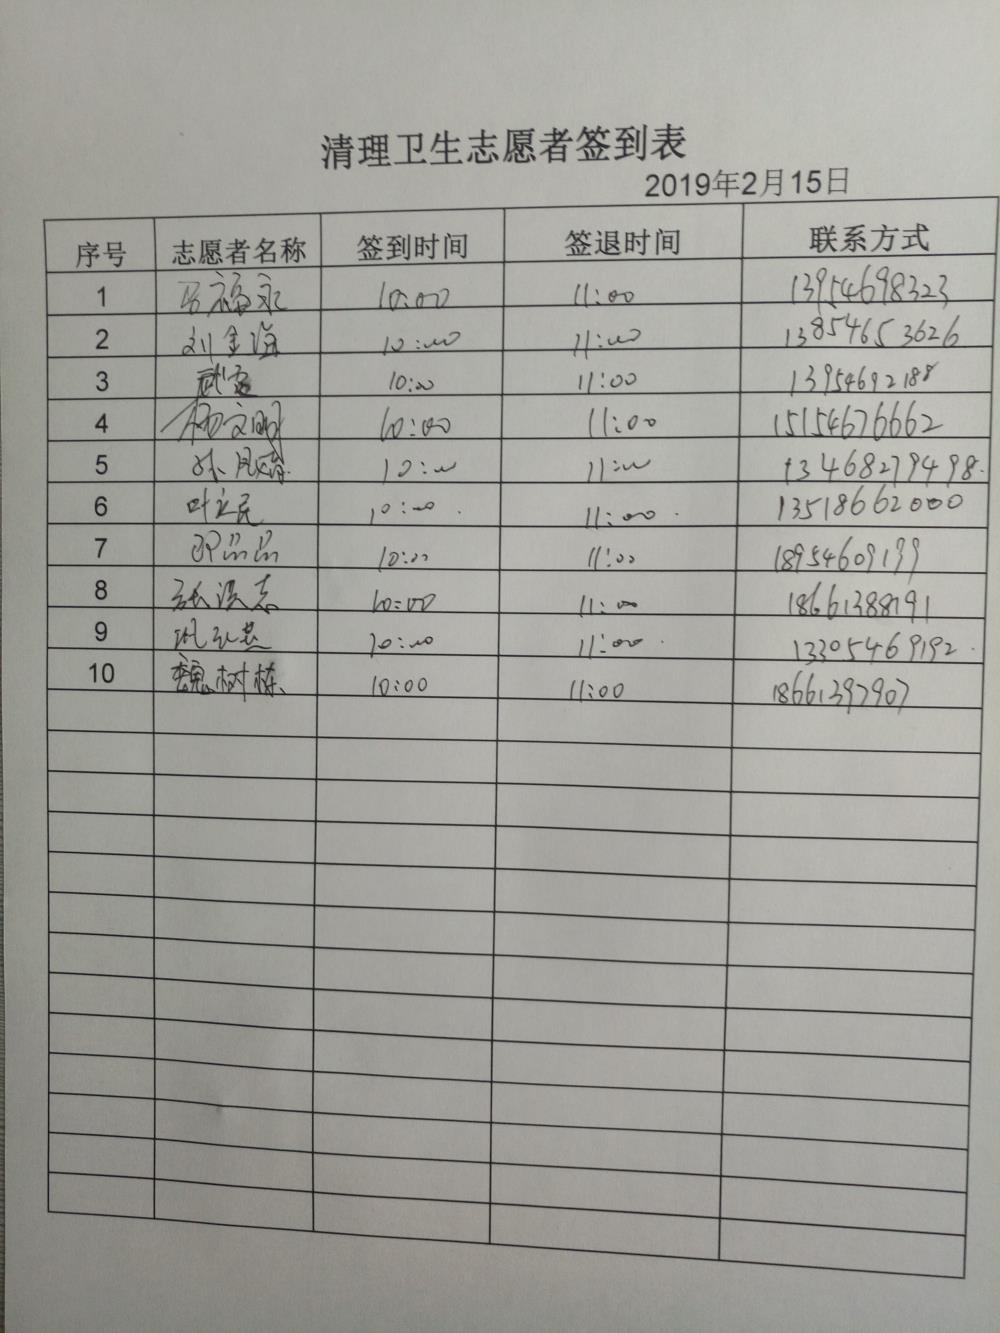 清理卫生志愿者签到表
2019年2月15日
序号 志愿者名称 签到时间 签退时间 联系方式
1 马福永 10:00 11:00 13954698323
2 刘金海 10:00 11:00 13854653626
3 10:00 11:00 13954692188
4 杨文明 10:00 11:00 15154676662
5 10:00 11:00 13468279498
6 叶立民 10:00 11:00 13518662000
7 10:00 11:00 18954609199
8 10:00 11:00 18661388191
9 10:00 11:00 13305469192
10 魏树栋 10:00 11:00 18661397907